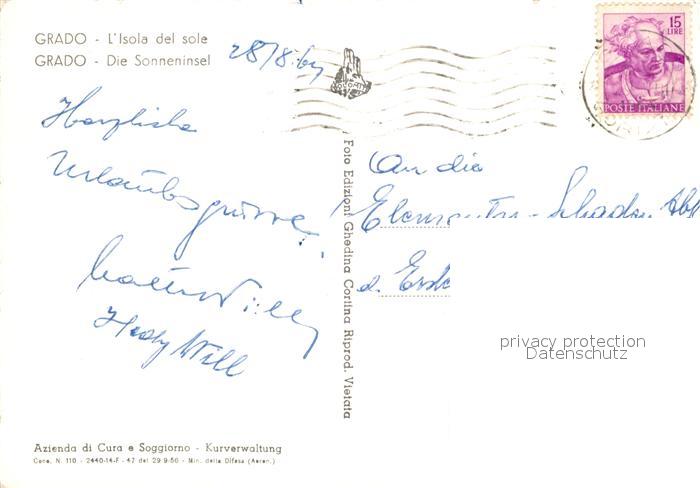 GRADO - L'Isola del sole
GRADO - Die Sonneninsel
28/8.64
15
LIRE
POSTE ITALIANE
Herzliche
Urlaubsgrüsse
Willy
Hedy Will
Foto Edizioni Ghedina Cortina Riprod. Vietata
An die
Elementar-Schaden Abt
d.
privacy protection
Datenschutz
Azienda di Cura e Soggiorno - Kurverwaltung
Conc. N. 110. - 2440-14-F - 47 del 29-9-56 - Min. della Difesa (Aeron.)